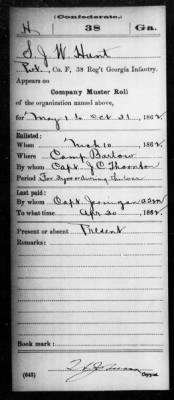 (Confederate.)
H 38 Ga.
S. J. W. Hunt
Pvt., Co. F, 38 Reg't Georgia Infantry.
Appears on
Company Muster Roll
of the organization named above,
for May 1 to Oct 31, 1862.
Enlisted:
When Mch 10, 1862.
Where Camp Bartow
By whom Capt. J C Thornton
Period For 3 years or during the war
Last paid:
By whom Capt. Jernigan
To what time Apr 30, 1862.
Present or absent Present
Remarks:
Book mark:
(642) Copyist.